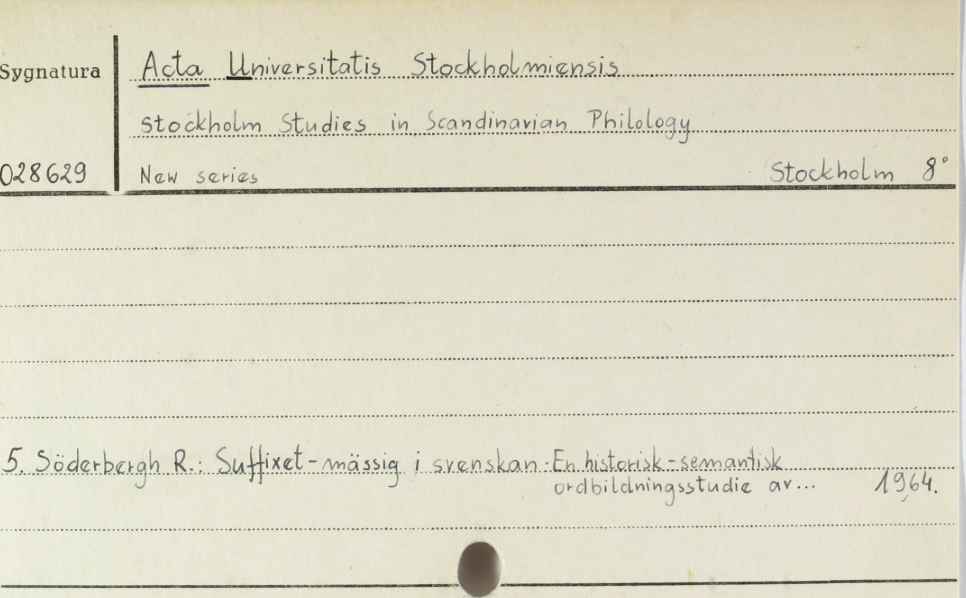 Sygnatura
Acta Universitatis Stockholmiensis
Stockholm Studies in Scandinavian Philology
028629
New series Stockholm 8°
5. Söderbergh R.: Suffixet-mässig i svenskan: En historisk-semantisk
ordbildningsstudie av... 1964.